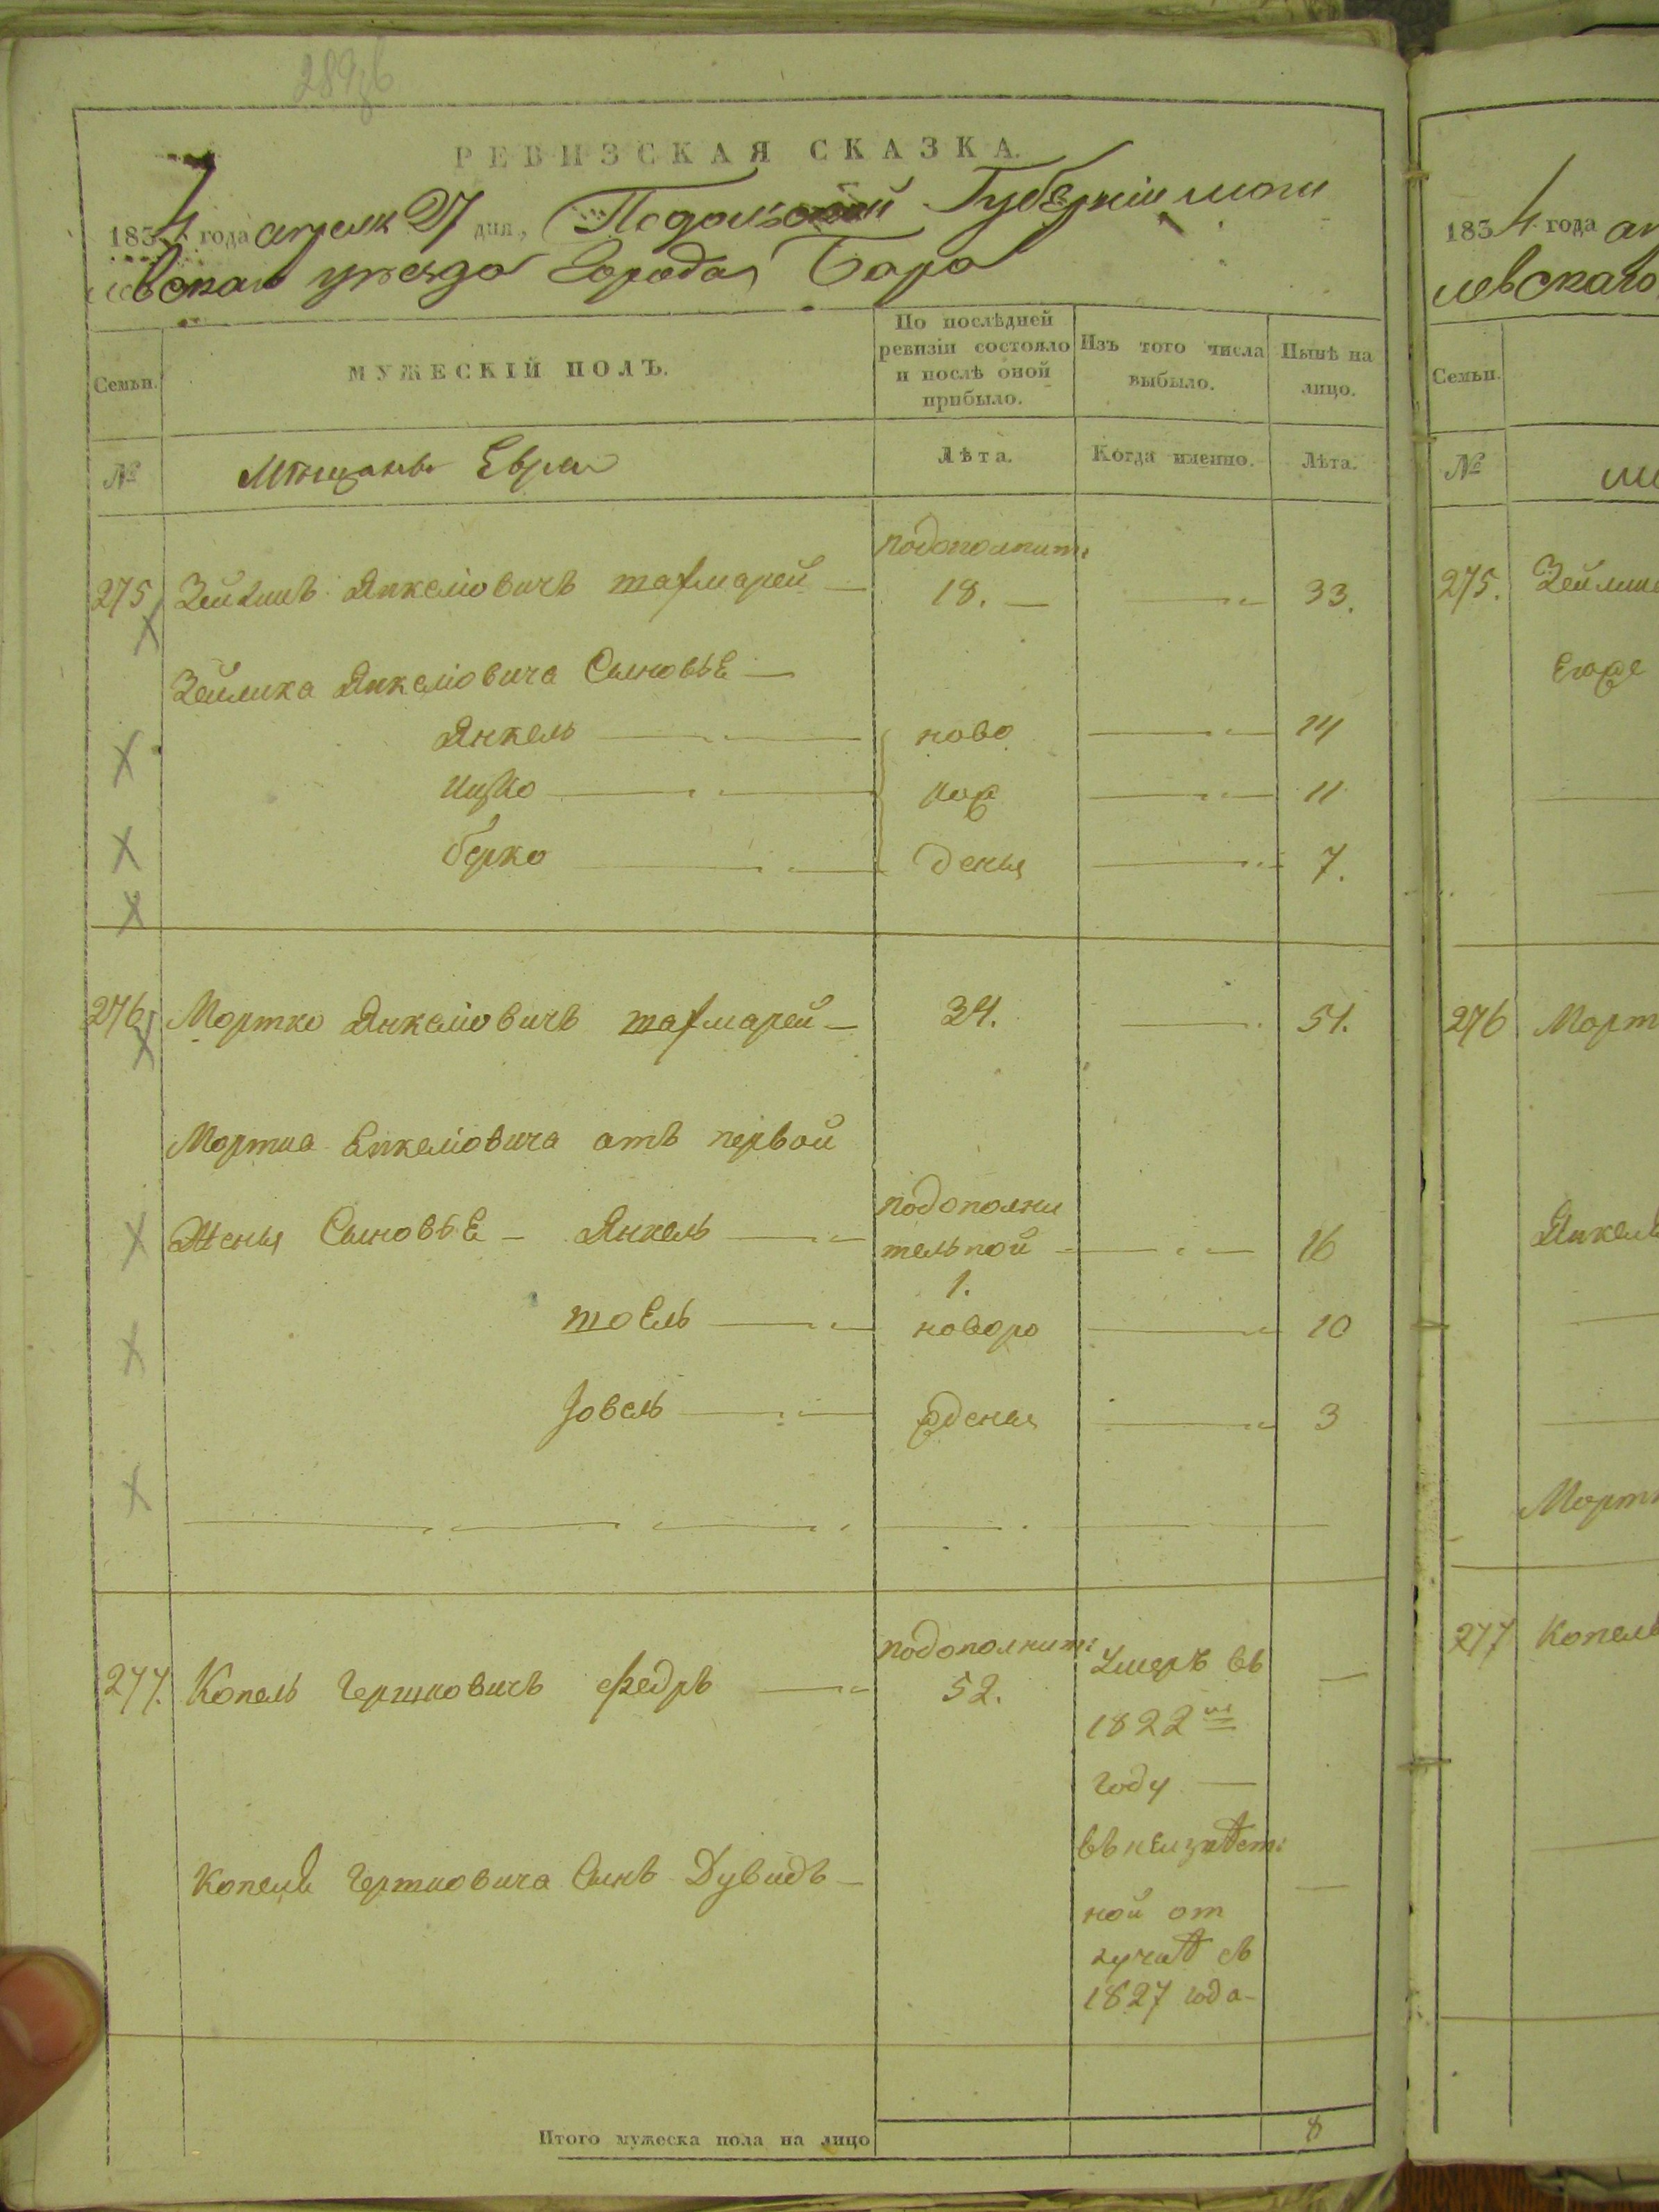 289об
РЕВИЗСКАЯ СКАЗКА.
1834 года апреля 27 дня, Подольской Губерніи моги
левскаго уѣзда Города Бара
Семьи.
МУЖЕСКІЙ ПОЛЪ.
По послѣдней ревизіи состояло и послѣ оной прибыло.
Изъ того числа выбыло.
Нынѣ на лицо.
№
Мѣщанъ Евреи
Лѣта.
Когда именно.
Лѣта.
подополнит:
275 Зейликъ Янкеліовичъ — 18. — 33.
Зейлика Янкеліовича Сыновье —
Янкель ново 14
Ицко рож 11
берко денъя 7.
276 Мортко Янкеліовичъ — 34. 51.
Мортка Янкеліовича отъ первой
Женъя Сыновье — Янкель подополни
тельной 16
1.
новоро 10
Іовель жденъя 3
277. Копель Гершковичъ федръ подополнит: 52. Умеръ въ —
1822мъ
году —
Копеля Гершковича Сынъ Дувидъ — въ неизвѣст: —
ной от
лучкѣ съ
1827 года
Итого мужеска пола на лицо 8
1834 года ап
левскаго
Семьи.
№
275. Зейлик
Егоже
276 Морт
Янкель
Мортк
277 Копель